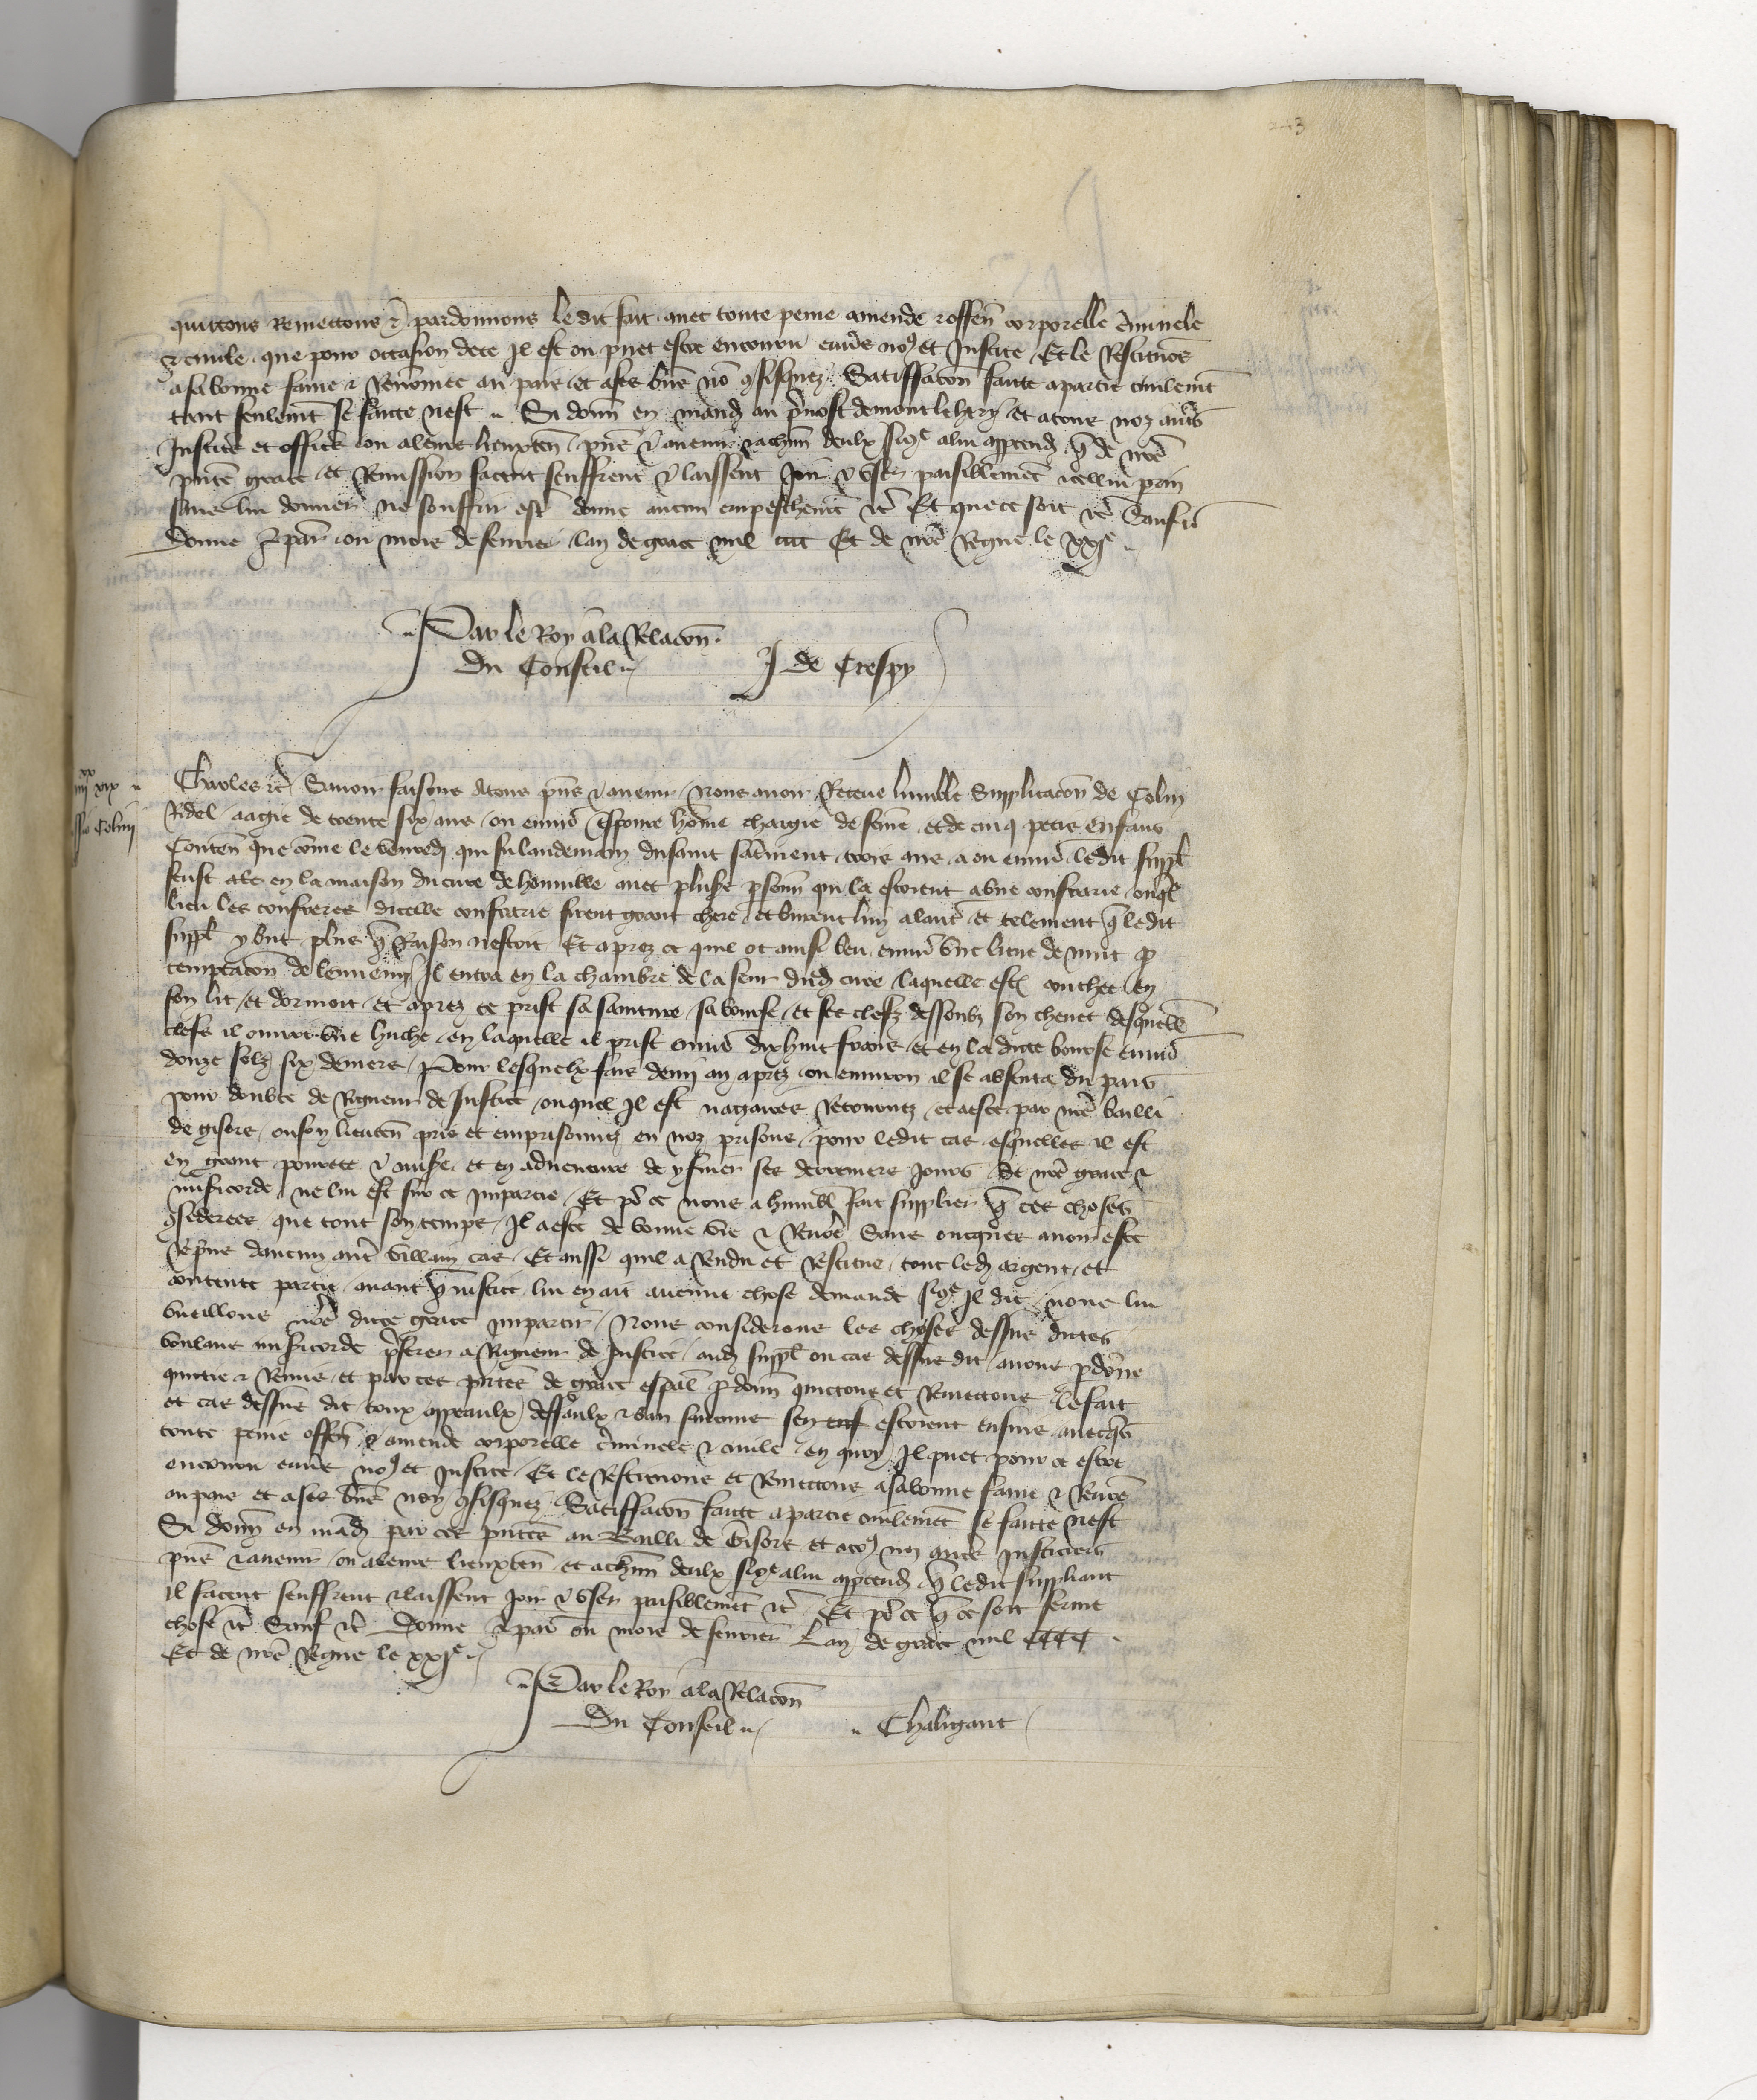 243
quittons Remettons & pardonnons le dit fait avec toute peine amende & offen corporelle criminele
& civile que pour occasion dece Il est ou puet estre encouru envers no9 et Justice Et le Restituons
a sa bonne fame & Renommee au pais et a ses biens no 9fisquez Satiffacon faicte a partie civilemt
tant seulemt se faicte nest Si donn en mand au prevost de montlehery et a tous noz autres
Justiciers et officiers ou a leurs lieuxten pns & avenir & a chun deulx sicoe a lui appartendra q de nre
pnte grace et Remission facent seuffrent & laissent Joir & user paisiblement icellui prin
sans lui donner ne souffrir estre donne aucun empeschemt etc Et que ce soit etc Sauf etc
Donne a paris ou mois de fevrier lan de grace mil cccc Et de nre Regne le xxje
Par le Roy a la Relacon
Du Conseil J de Crespy
Charles etc Savoir faisons a tous pns & avenir Nous avoir Receue lumble Supplicacon de Colin
iiijxx xix
Ridel aagie de trente six ans ou environ povre homme chargie de feme et de cinq petis enfans
pour Colin
Conten que come le vendredi qui fu landemain du saint sacrement trois ans a ou environ ledit suppl
feust ale en la maison du cure de hennuille avec pluss psonn qui la estoient a une confrarie ouql
lieu les confreres dicelle confrarie firent grant chere et burent lun a lautre et telement q ledit
suppl y but plus q Raison nestoit Et aprez ce quil ot ainsi beu environ une lieue de nuit p
temptacon de lennemi Il entra en la chambre de la seur dud cure laquelle estoit couchee en
son lit et dormoit et aprez ce prist sa sainture sa bourse et ses clefz dessoubz son chevet desquelles
clefs il ouvrit une huche en laquelle il prist environ dixhuit frans et en la dicte bourse environ
douze solz six deniers Pour lesquelx fais demi an aprez ou environ il se absenta du pais
pour doubte de Rigueur de Justice ouquel Il est nagaires Retournez et a este par nre bailli
de gisors ou son lieuten pris et emprisonnez en noz prisons pour ledit cas esquelles il est
en grant povrete & misere et en adventure de y finer ses derreniers Jours se nre grace &
misericorde ne lui est sur ce Impartie Et pour ce nous a humblement fait supplier q ces choses
9siderees que tout son temps Il a este de bonne vie & Renomee Sans oncques avoir este
Reprins daucun autre villain cas Et aussi quil a Rendu et Restitue tout led argent et
contente partie avant q justice lui en ait aucune chose demande sicoe Il dit Nous lui
vueillons nre dicte grace Impartir Nous considerans les choses dessus dictes
voulans misericorde preferer a Rigueur de Justice aud suppl ou cas dessus dit avons pdonne
quitte & Remis et par ces pntes de grace espal pdonn quittons et Remettons le fait
et cas dessus dit tous appeaulx deffaulx & ban saucune sen estoient ensuis avecques
toute peine offen & amende corporelle criminele & civile en quoy Il puet pour ce estre
encouru envers no9 et Justice Et le Restituons et Remettons a sa bonne fame & Renomee
au pais et a ses biens non 9fisquez Satiffacon faicte a partie civilement se faicte nest
Si donn en mand par ces pntes au Bailli de Gisors et a to9 noz autres Justiciers
pns & avenir ou a leurs lieuxten et a chun deulx sicoe a lui appartend q ledit suppliant
il facent seuffrent & laissent Joir & user paisiblement etc Et pour ce q ce soit ferme
chose etc Sauf etc Donne a paris ou mois de fevrier Lan de grace mil CCCC
Et de nre Regne le xxje
Par le Roy a la Relacon
Du Conseil Chaligaut